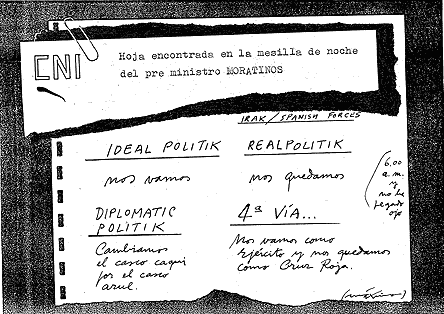 CNI
Hoja encontrada en la mesilla de noche
del pre ministro MORATINOS
IRAK/SPANISH FORCES
IDEAL POLITIK
nos vamos
REALPOLITIK
nos quedamos
(6.00
a.m.
y
no he
pegado
ojo
DIPLOMATIC
POLITIK
Cambiamos
el casco caqui
por el casco
azul.
4ª VÍA...
Nos vamos como
Ejército y nos quedamos
como Cruz Roja.
(máximo)